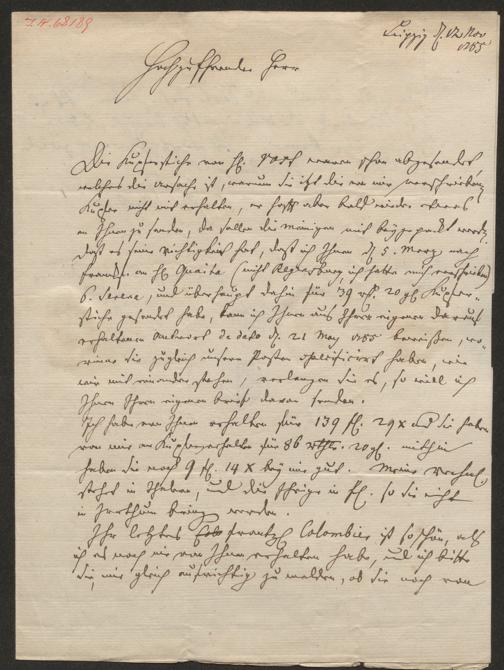 I.N. 68189
Leipzig d. 12 Nov
1765
Hochzuehrender Herr
Die Kupferstiche von H. waren schon abgesendet
welches die Ursache ist, warum Sie die von mir verschriebenen
Kupfer nicht mit erhalten, er hofft aber bald wieder etwas
an Ihnen zu senden, da sollen die meinigen mit beygepackt werden.
daß es seine Richtigkeit hat, daß ich Ihnen d. 5. Merz nach
an H. Quaita (nicht Regensburg ich hatte mich verschrieben)
6. und überhaupt dahin für 39 rth. 20 gl. Kupfer-
stiche gesendet habe, kann ich Ihnen aus Ihrer eigenen darauf
erhaltenen Antwort de dato d. 21 May 1765 beweisen, wo-
rinne Sie zugleich unsere Posten specificiret haben, wie
wir mit einander stehen, verlangen Sie es, so will ich
Ihnen Ihren eigenen Brief davon senden.
Ich habe von Ihnen erhalten für 139 fl. 29 x und Sie haben
von mir an Kupfer erhalten für 86 rthlr. 20 gl. mithin
haben Sie noch 9 fl. 14 x bey mir gut. Meine
steht in Thalern, und die Ihrige in fl. so Sie nicht
in Irrthum bringen werden.
Ihr letztes Colombier ist so schön, als
ich es noch nie von Ihnen erhalten habe, und ich bitte
Sie, mir gleich aufrichtig zu melden, ob Sie noch von